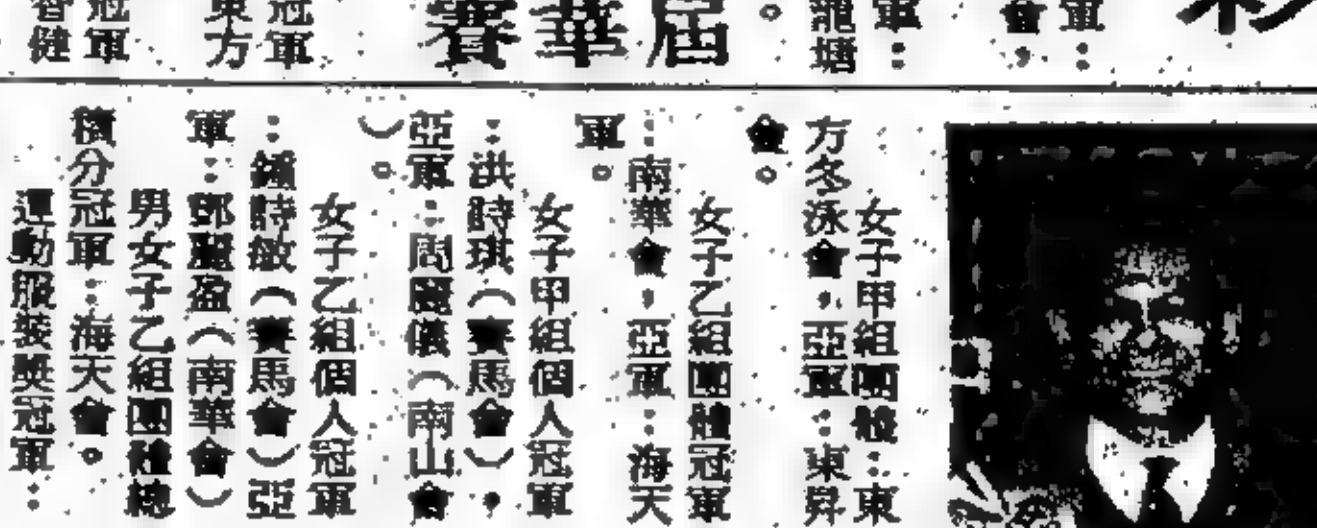 軍：
會，
軍：
龍塘
。
屆華賽
冠軍
東方
冠軍
智健
女子甲組團體：東
方冬泳會，亞軍：東昇
會。
女子乙組團體冠軍
：南華會，亞軍：海天
軍。
女子甲組個人冠軍
：洪詩琪（賽馬會），
亞軍：周麗儀（南山會
）。
女子乙組個人冠軍
：鍾詩敏（賽馬會）亞
軍：鄧麗盈（南華會）
男女子乙組團體總
積分冠軍：海天會。
運動服裝獎冠軍：